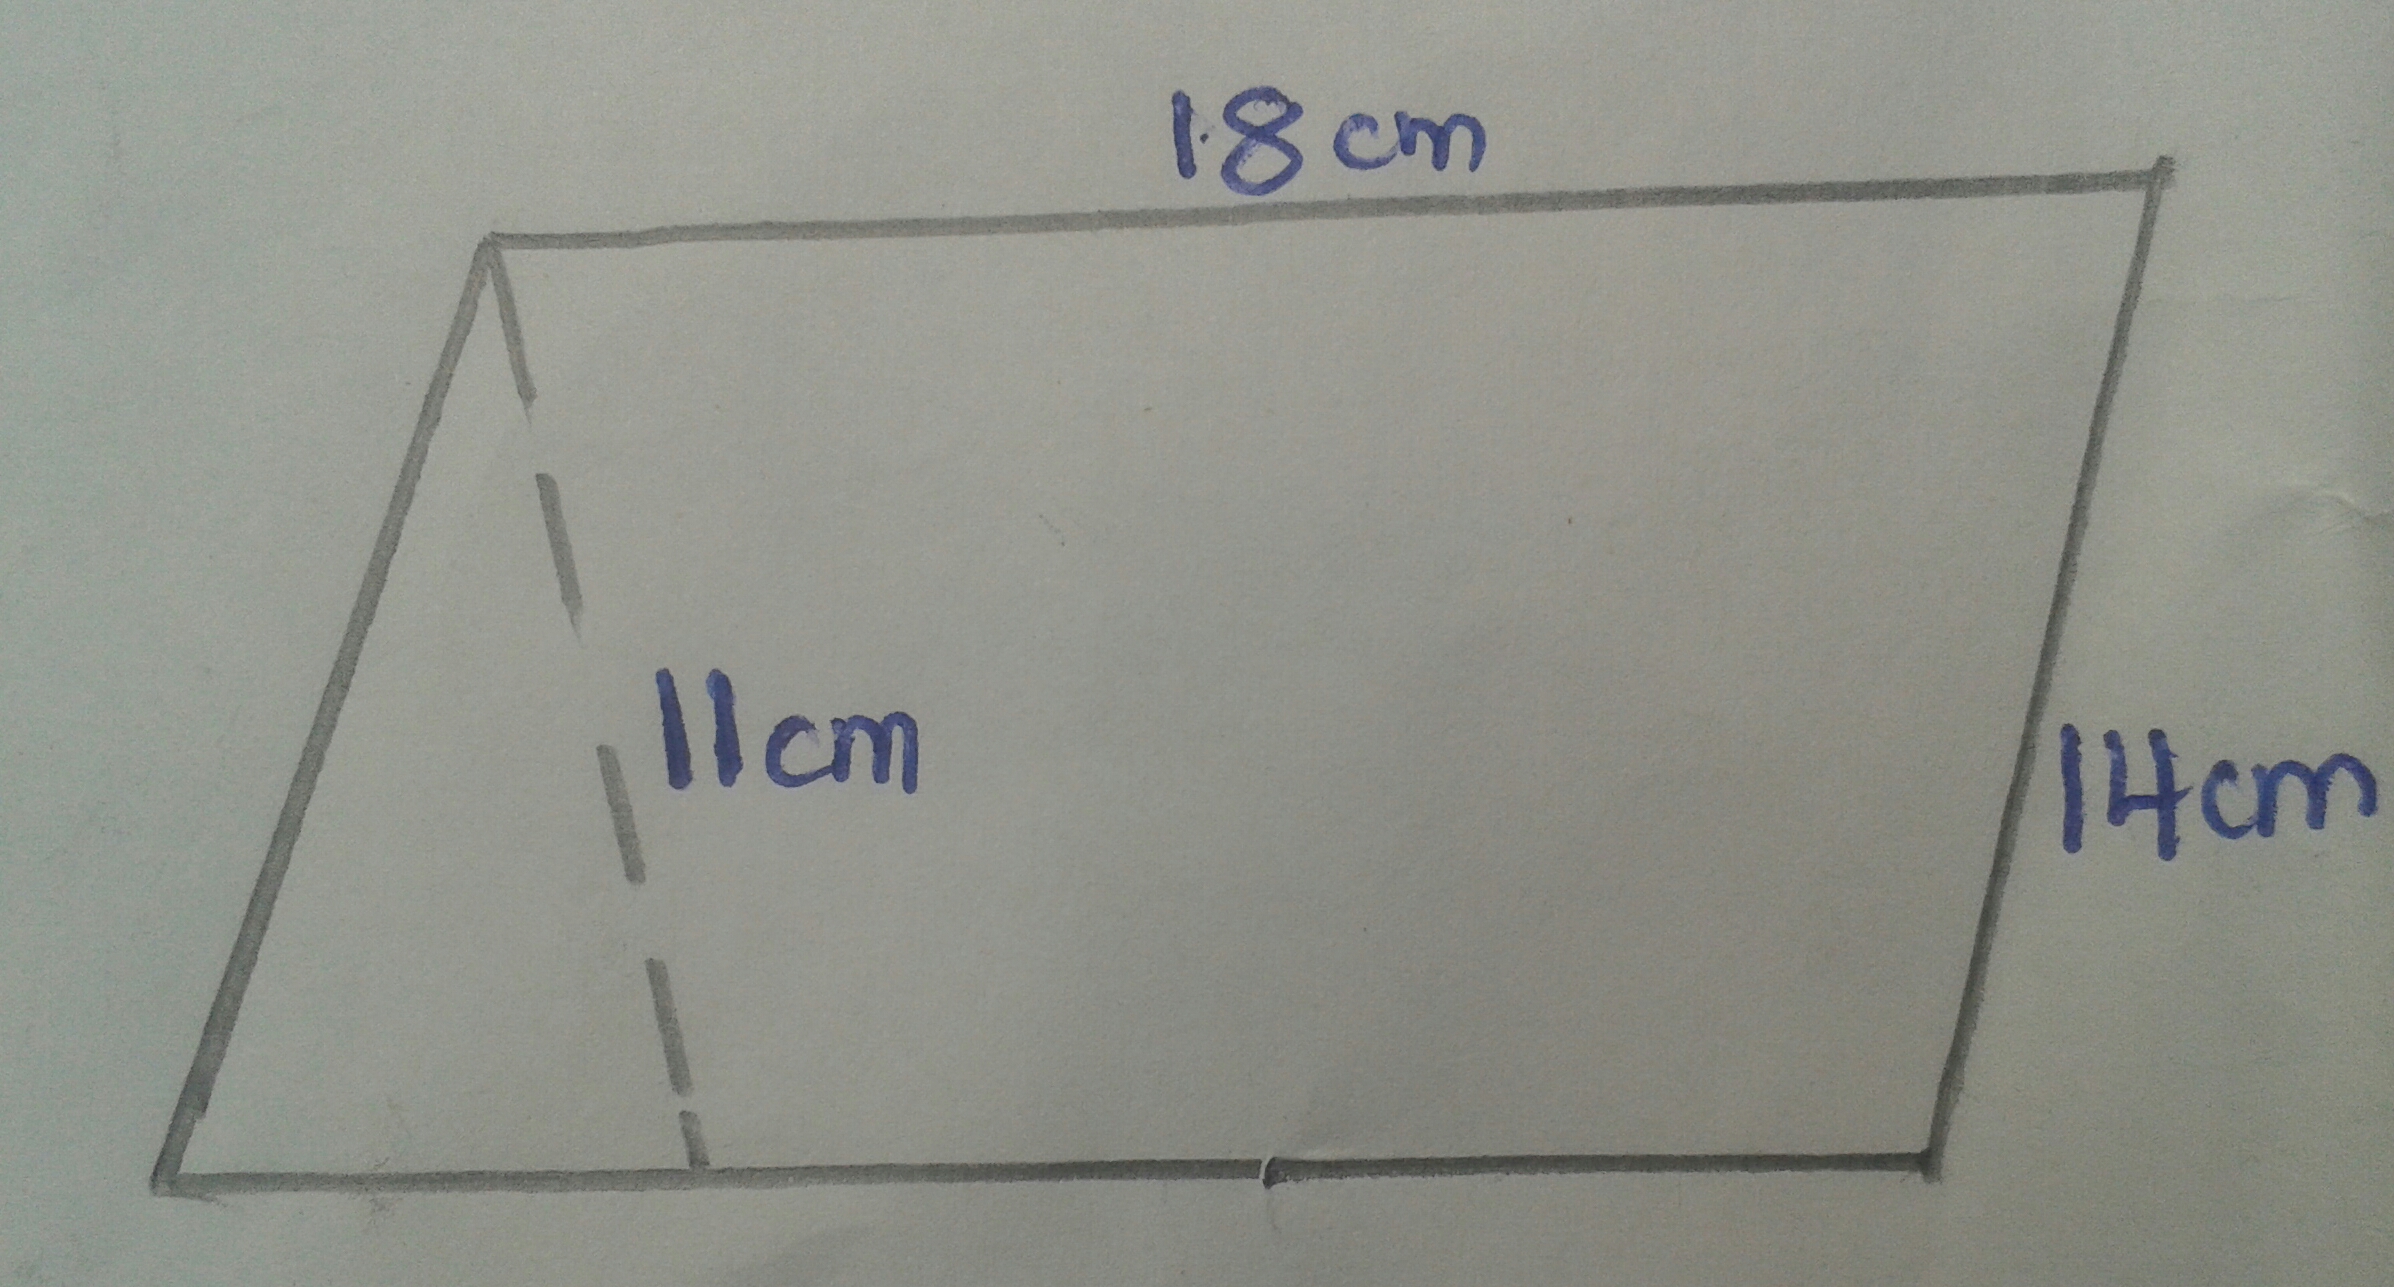 18cm
11cm
14cm